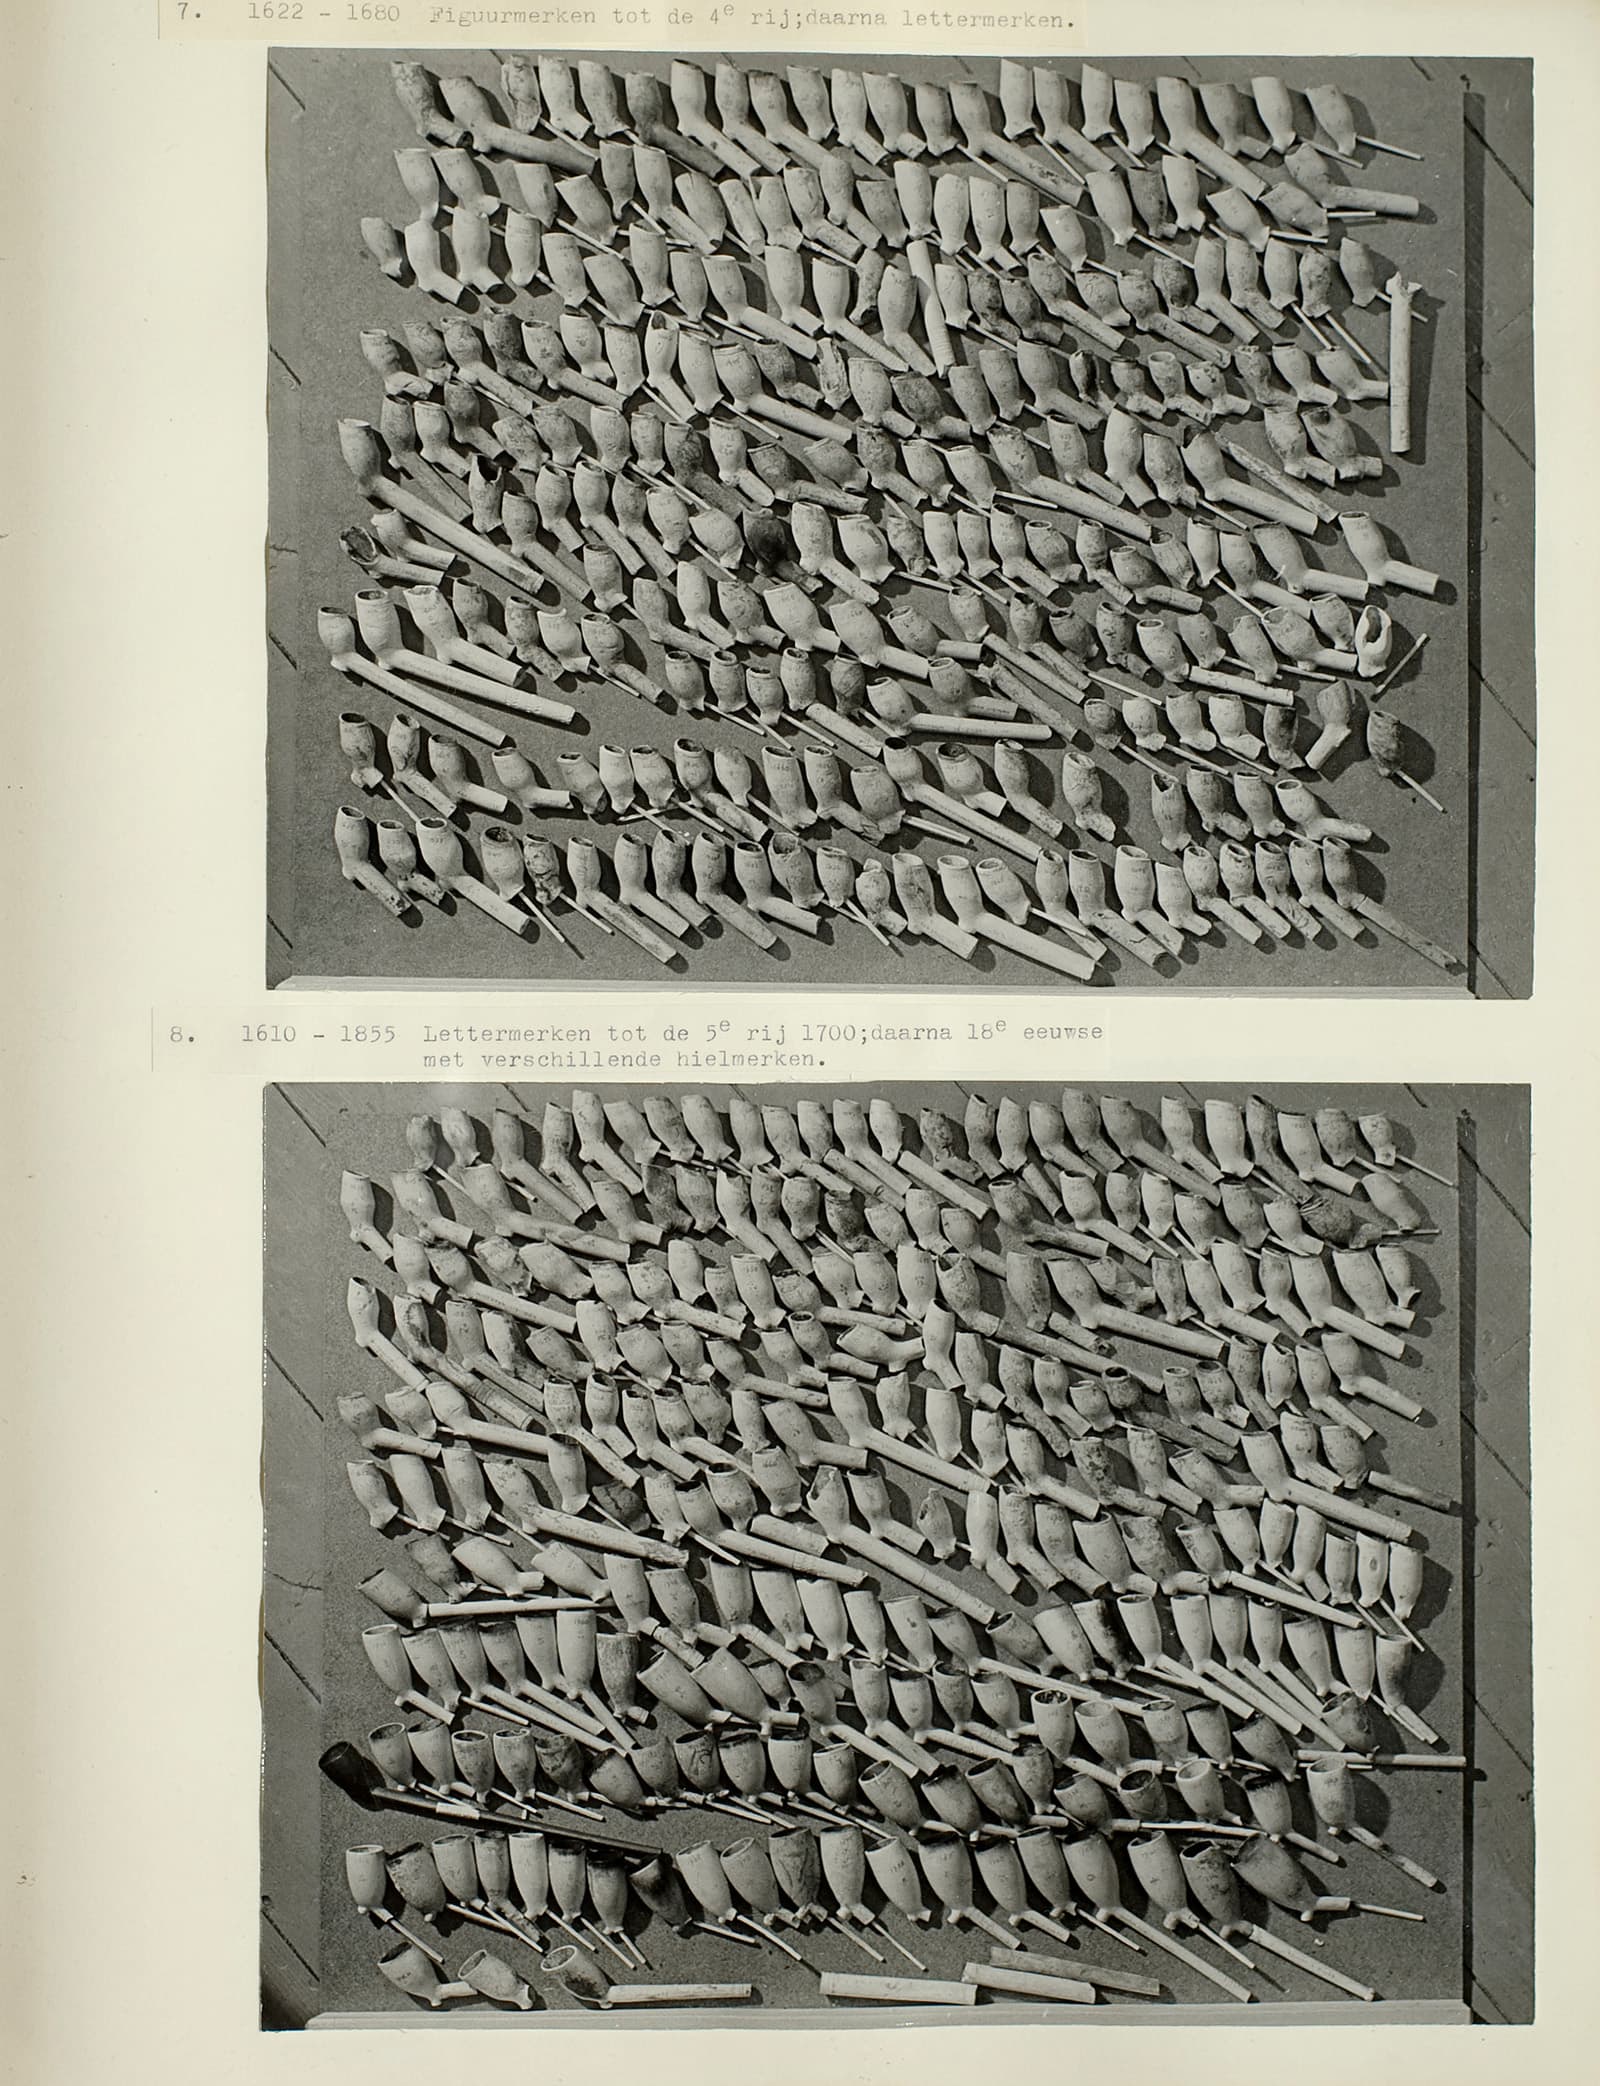 7. 1622 - 1680 Figuurmerken tot de 4e rij;daarna lettermerken.
8. 1610 - 1855 Lettermerken tot de 5e rij 1700;daarna 18e eeuwse
met verschillende hielmerken.